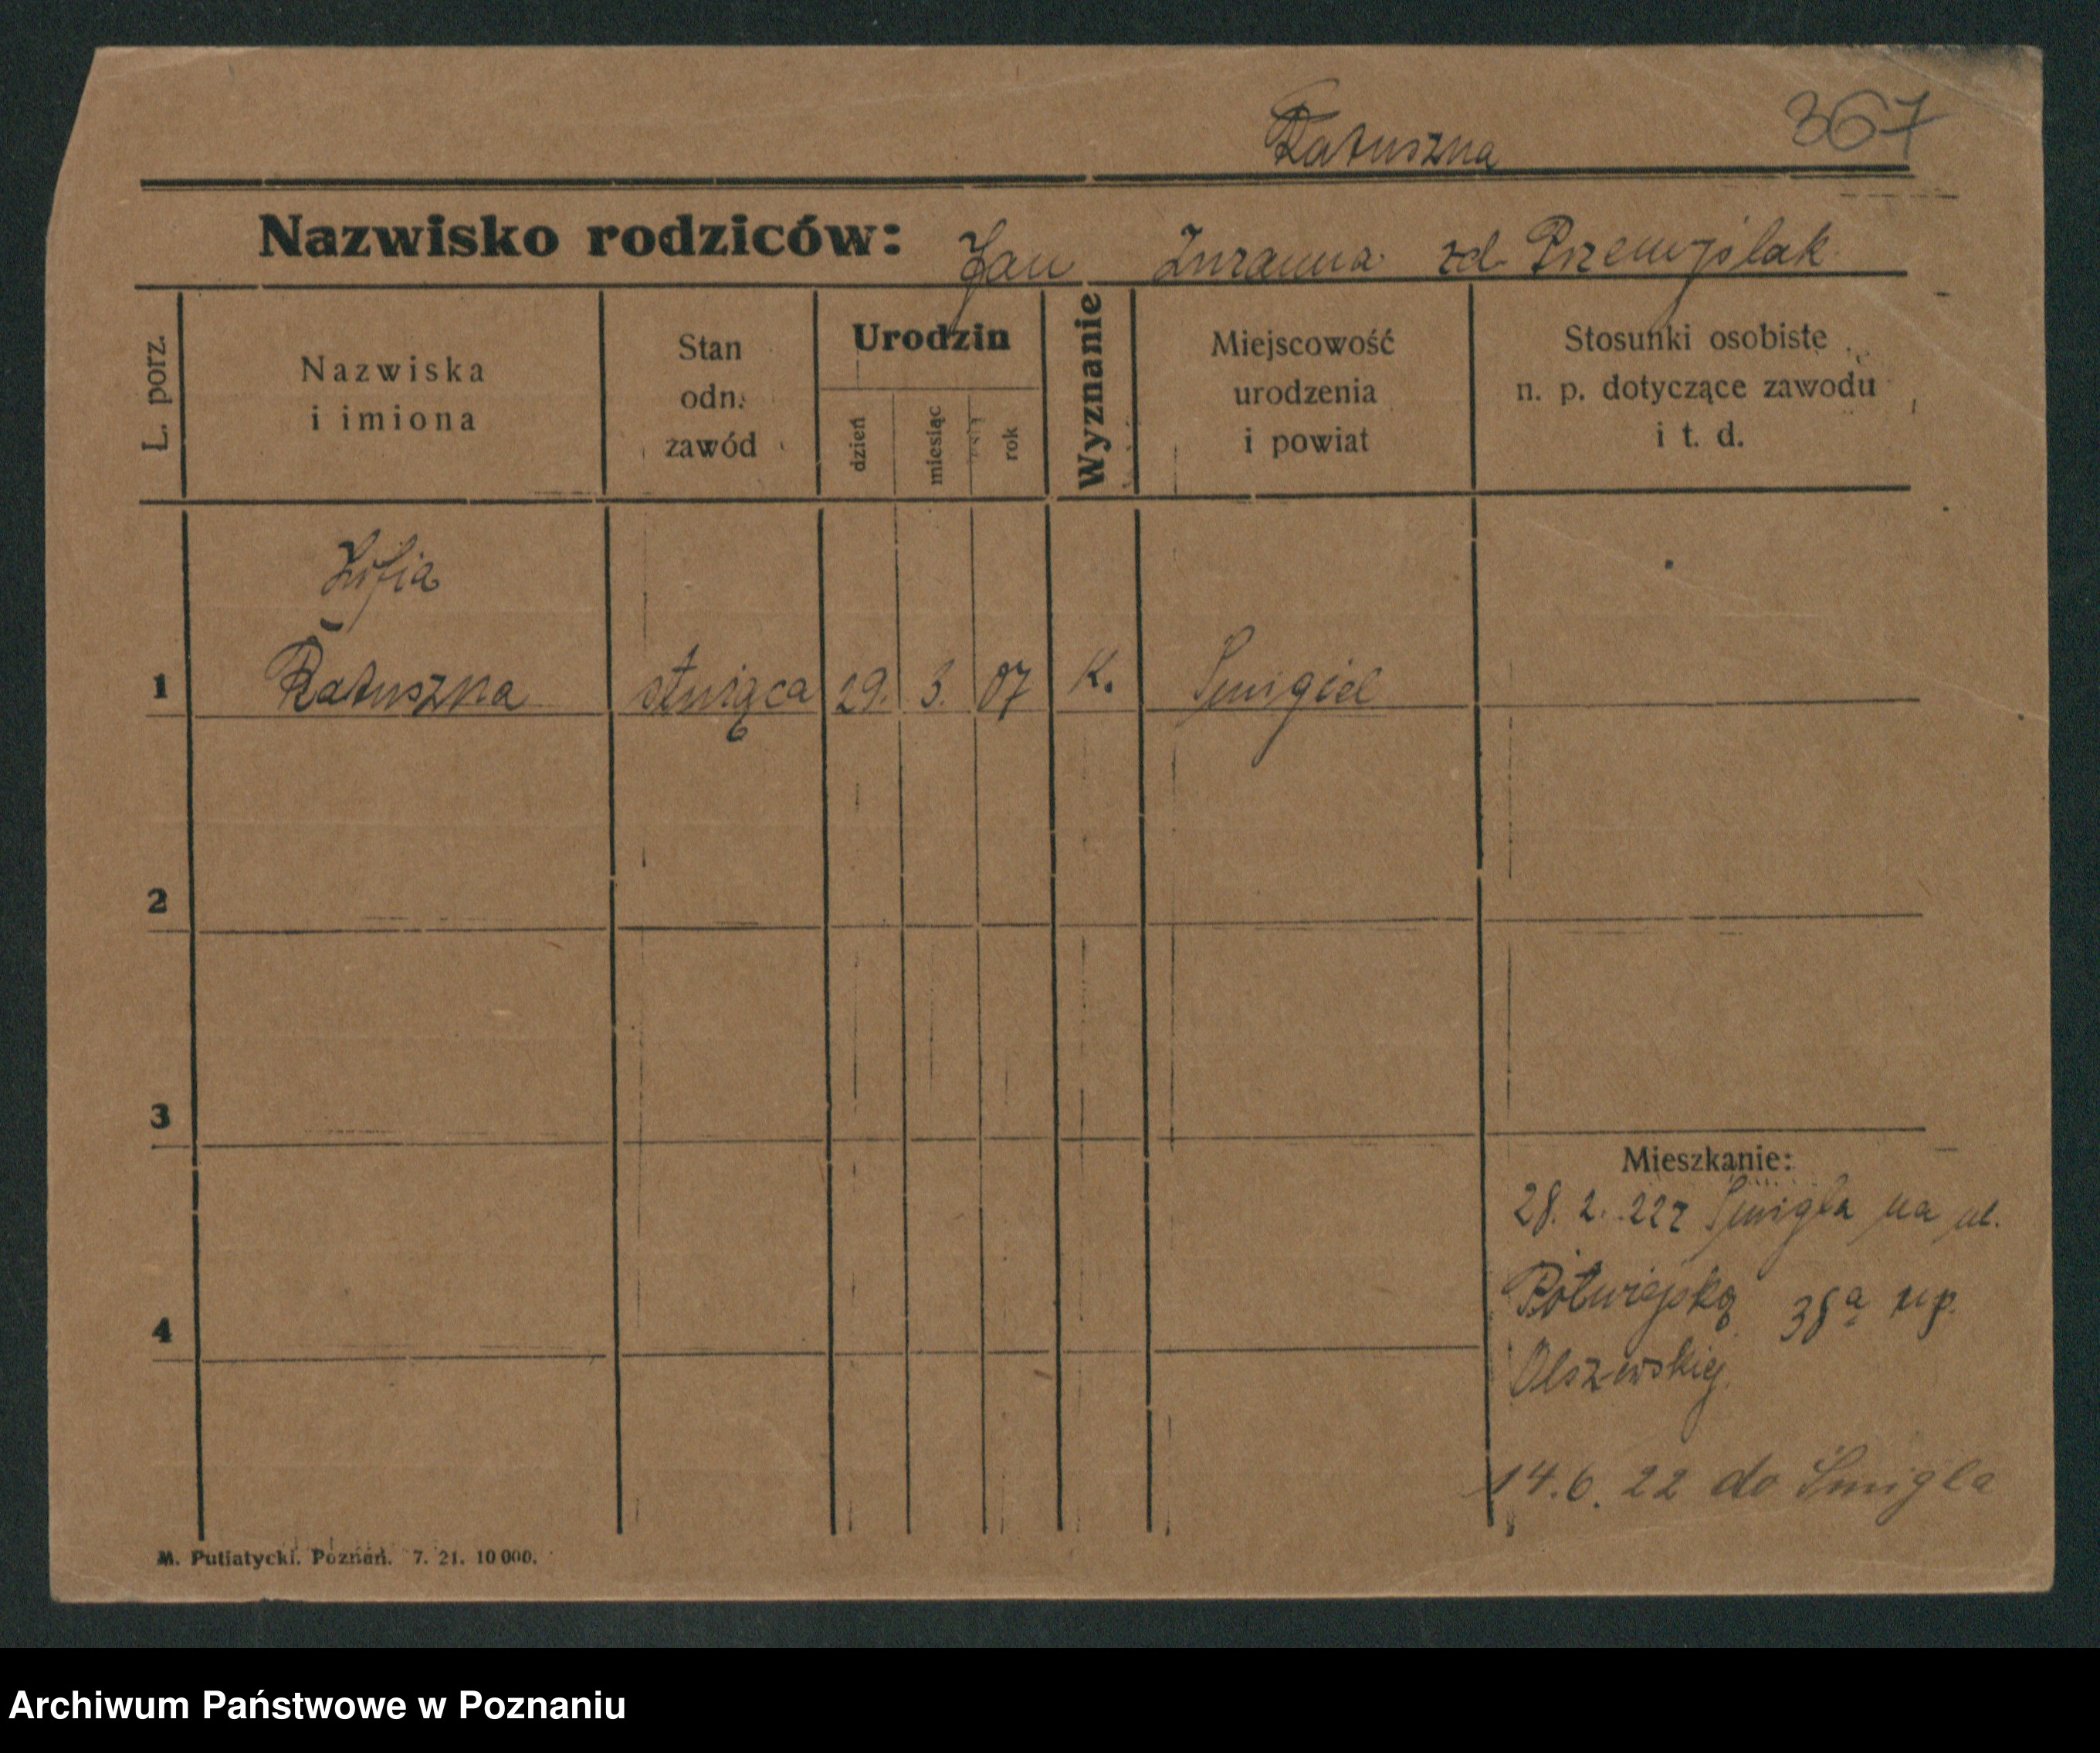 Ratuszna
367
Nazwisko rodziców: Jan Zuzanna zd. Przemyślak
L. porz.
Nazwiska
i imiona
Stan
odn.
zawód
Urodzin
dzień
miesiąc
rok
Wyznanie
Miejscowość
urodzenia
i powiat
Stosunki osobiste
n. p. dotyczące zawodu
i t. d.
Zofja
1 Ratuszna służąca 29. 3. 07 K. Śmigiel
2
3
Mieszkanie:
28. 2. 22 z Śmigla na ul.
Półwiejską 38a u p.
4
Olszewskiej
14. 6. 22 do Śmigla
M. Putiatycki. Poznań. 7. 21. 10 000.
Archiwum Państwowe w Poznaniu